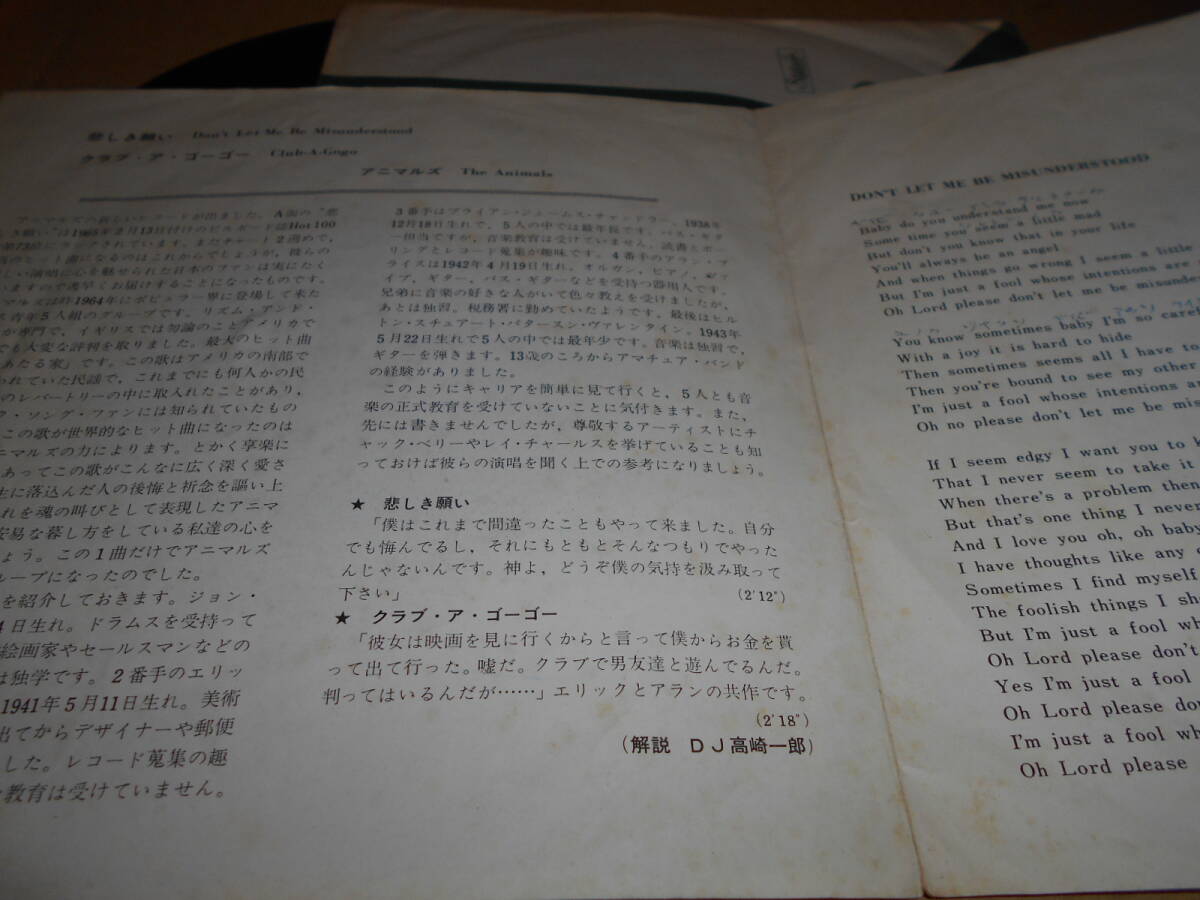 悲しき願い Don't Let Me Be Misunderstood
クラブ・ア・ゴーゴー Club-A-Gogo
アニマルズ The Animals
アニマルズの新しいレコードが出ました。A面の“悲
き願い”は1965年2月13日付けのビルボード誌Hot 100
にランクされています。またチャート2週めで,
のヒット曲になるのはこれからでしょうが, 彼らの
しい演唱に心を魅せられた日本のファンは実にたく
いますので逸早くお届けすることになったものです。
マルズは昨1964年にポピュラー界に登場して来た
ス青年5人組のグループです。リズム・アンド・
が専門で, イギリスでは勿論のことアメリカで
でも大変な評判を取りました。最大のヒット曲
あたる家」です。この歌はアメリカの南部で
われていた民謡で, これまでにも何人かの民
のレパートリーの中に取入れたことがあり,
ク・ソング・ファンには知られていたもの
この歌が世界的なヒット曲になったのは
ニマルズの力によります。とかく享楽に
あってこの歌がこんなに広く深く愛さ
生に落込んだ人の後悔と祈念を謳い上
れを魂の叫びとして表現したアニマ
安易な暮し方をしている私達の心を
ょう。この1曲だけでアニマルズ
ループになったのでした。
を紹介しておきます。ジョン・
日生れ。ドラムスを受持って
絵画家やセールスマンなどの
は独学です。2番手のエリッ
1941年5月11日生れ。美術
出てからデザイナーや郵便
した。レコード蒐集の趣
教育は受けていません。
3番手はブライアン・ジェームス・チャンドラー。1938年
12月18日生れで, 5人の中では最年長です。バス・ギタ
ー担当ですが, 音楽教育は受けていません。読書とボー
リングとレコード蒐集が趣味です。4番手のアラン・プ
ライスは1942年4月19日生れ。オルガン, ピアノ, ヴァ
イブ, ギター, バス・ギターなどを受持つ器用人です。
兄弟に音楽の好きな人がいて色々教えを受けましたが,
あとは独習。税務署に勤めていたようです。最後はヒル
トン・スチュアート・パタースン・ヴァレンタイン。1943年
5月22日生れで5人の中では最年少です。音楽は独習で,
ギターを弾きます。13歳のころからアマチュア・バンド
の経験がありました。
このようにキャリアを簡単に見て行くと, 5人とも音
楽の正式教育を受けていないことに気付きます。また,
先には書きませんでしたが, 尊敬するアーティストにチ
ャック・ベリーやレイ・チャールスを挙げていることも知
っておけば彼らの演唱を聞く上での参考になりましょう。
★ 悲しき願い
「僕はこれまで間違ったこともやって来ました。自分
でも悔んでるし, それにもともとそんなつもりでやった
んじゃないんです。神よ, どうぞ僕の気持を汲み取って
下さい」 (2'12")
★ クラブ・ア・ゴーゴー
「彼女は映画を見に行くからと言って僕からお金を貰
って出て行った。嘘だ。クラブで男友達と遊んでるんだ。
判ってはいるんだが……」エリックとアランの共作です。
(2'18")
(解説 DJ高崎一郎)
DON'T LET ME BE MISUNDERSTOOD
Baby do you understand me now
Some time you seem a little mad
But don't you know that in your life
You'll always be an angel
And when things go wrong I seem a little
But I'm just a fool whose intentions are
Oh Lord please don't let me be misunder
You know sometimes baby I'm so caref
With a joy it is hard to hide
Then sometimes seems all I have to
Then you're bound to see my other
I'm just a fool whose intentions a
Oh no please don't let me be mis
If I seem edgy I want you to k
That I never seem to take it
When there's a problem then
But that's one thing I never
And I love you oh, oh baby
I have thoughts like any o
Sometimes I find myself
The foolish things I sh
But I'm just a fool wh
Oh Lord please don't
Yes I'm just a fool
Oh Lord please don
I'm just a fool wh
Oh Lord please